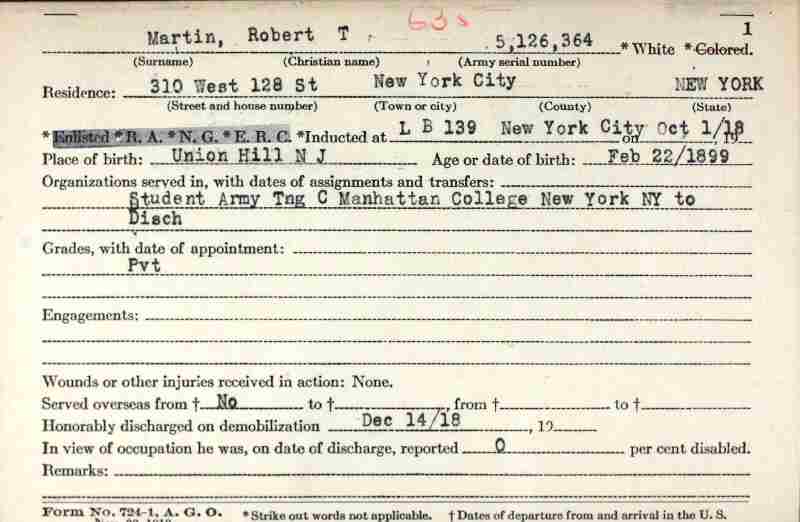 63s
1
Martin, Robert T 5,126,364 *White *Colored.
(Surname) (Christian name) (Army serial number)
Residence: 310 West 128 St New York City NEW YORK
(Street and house number) (Town or city) (County) (State)
*Enlisted *R. A. *N. G. *E. R. C. *Inducted at L B 139 New York City on Oct 1/18 19
Place of birth: Union Hill N J Age or date of birth: Feb 22/1899
Organizations served in, with dates of assignments and transfers:
Student Army Tng C Manhattan College New York NY to
Disch
Grades, with date of appointment:
Pvt
Engagements:
Wounds or other injuries received in action: None.
Served overseas from † No to †, from † to †
Honorably discharged on demobilization Dec 14/18, 19
In view of occupation he was, on date of discharge, reported 0 per cent disabled.
Remarks:
Form No. 724-1, A. G. O. *Strike out words not applicable. †Dates of departure from and arrival in the U. S.